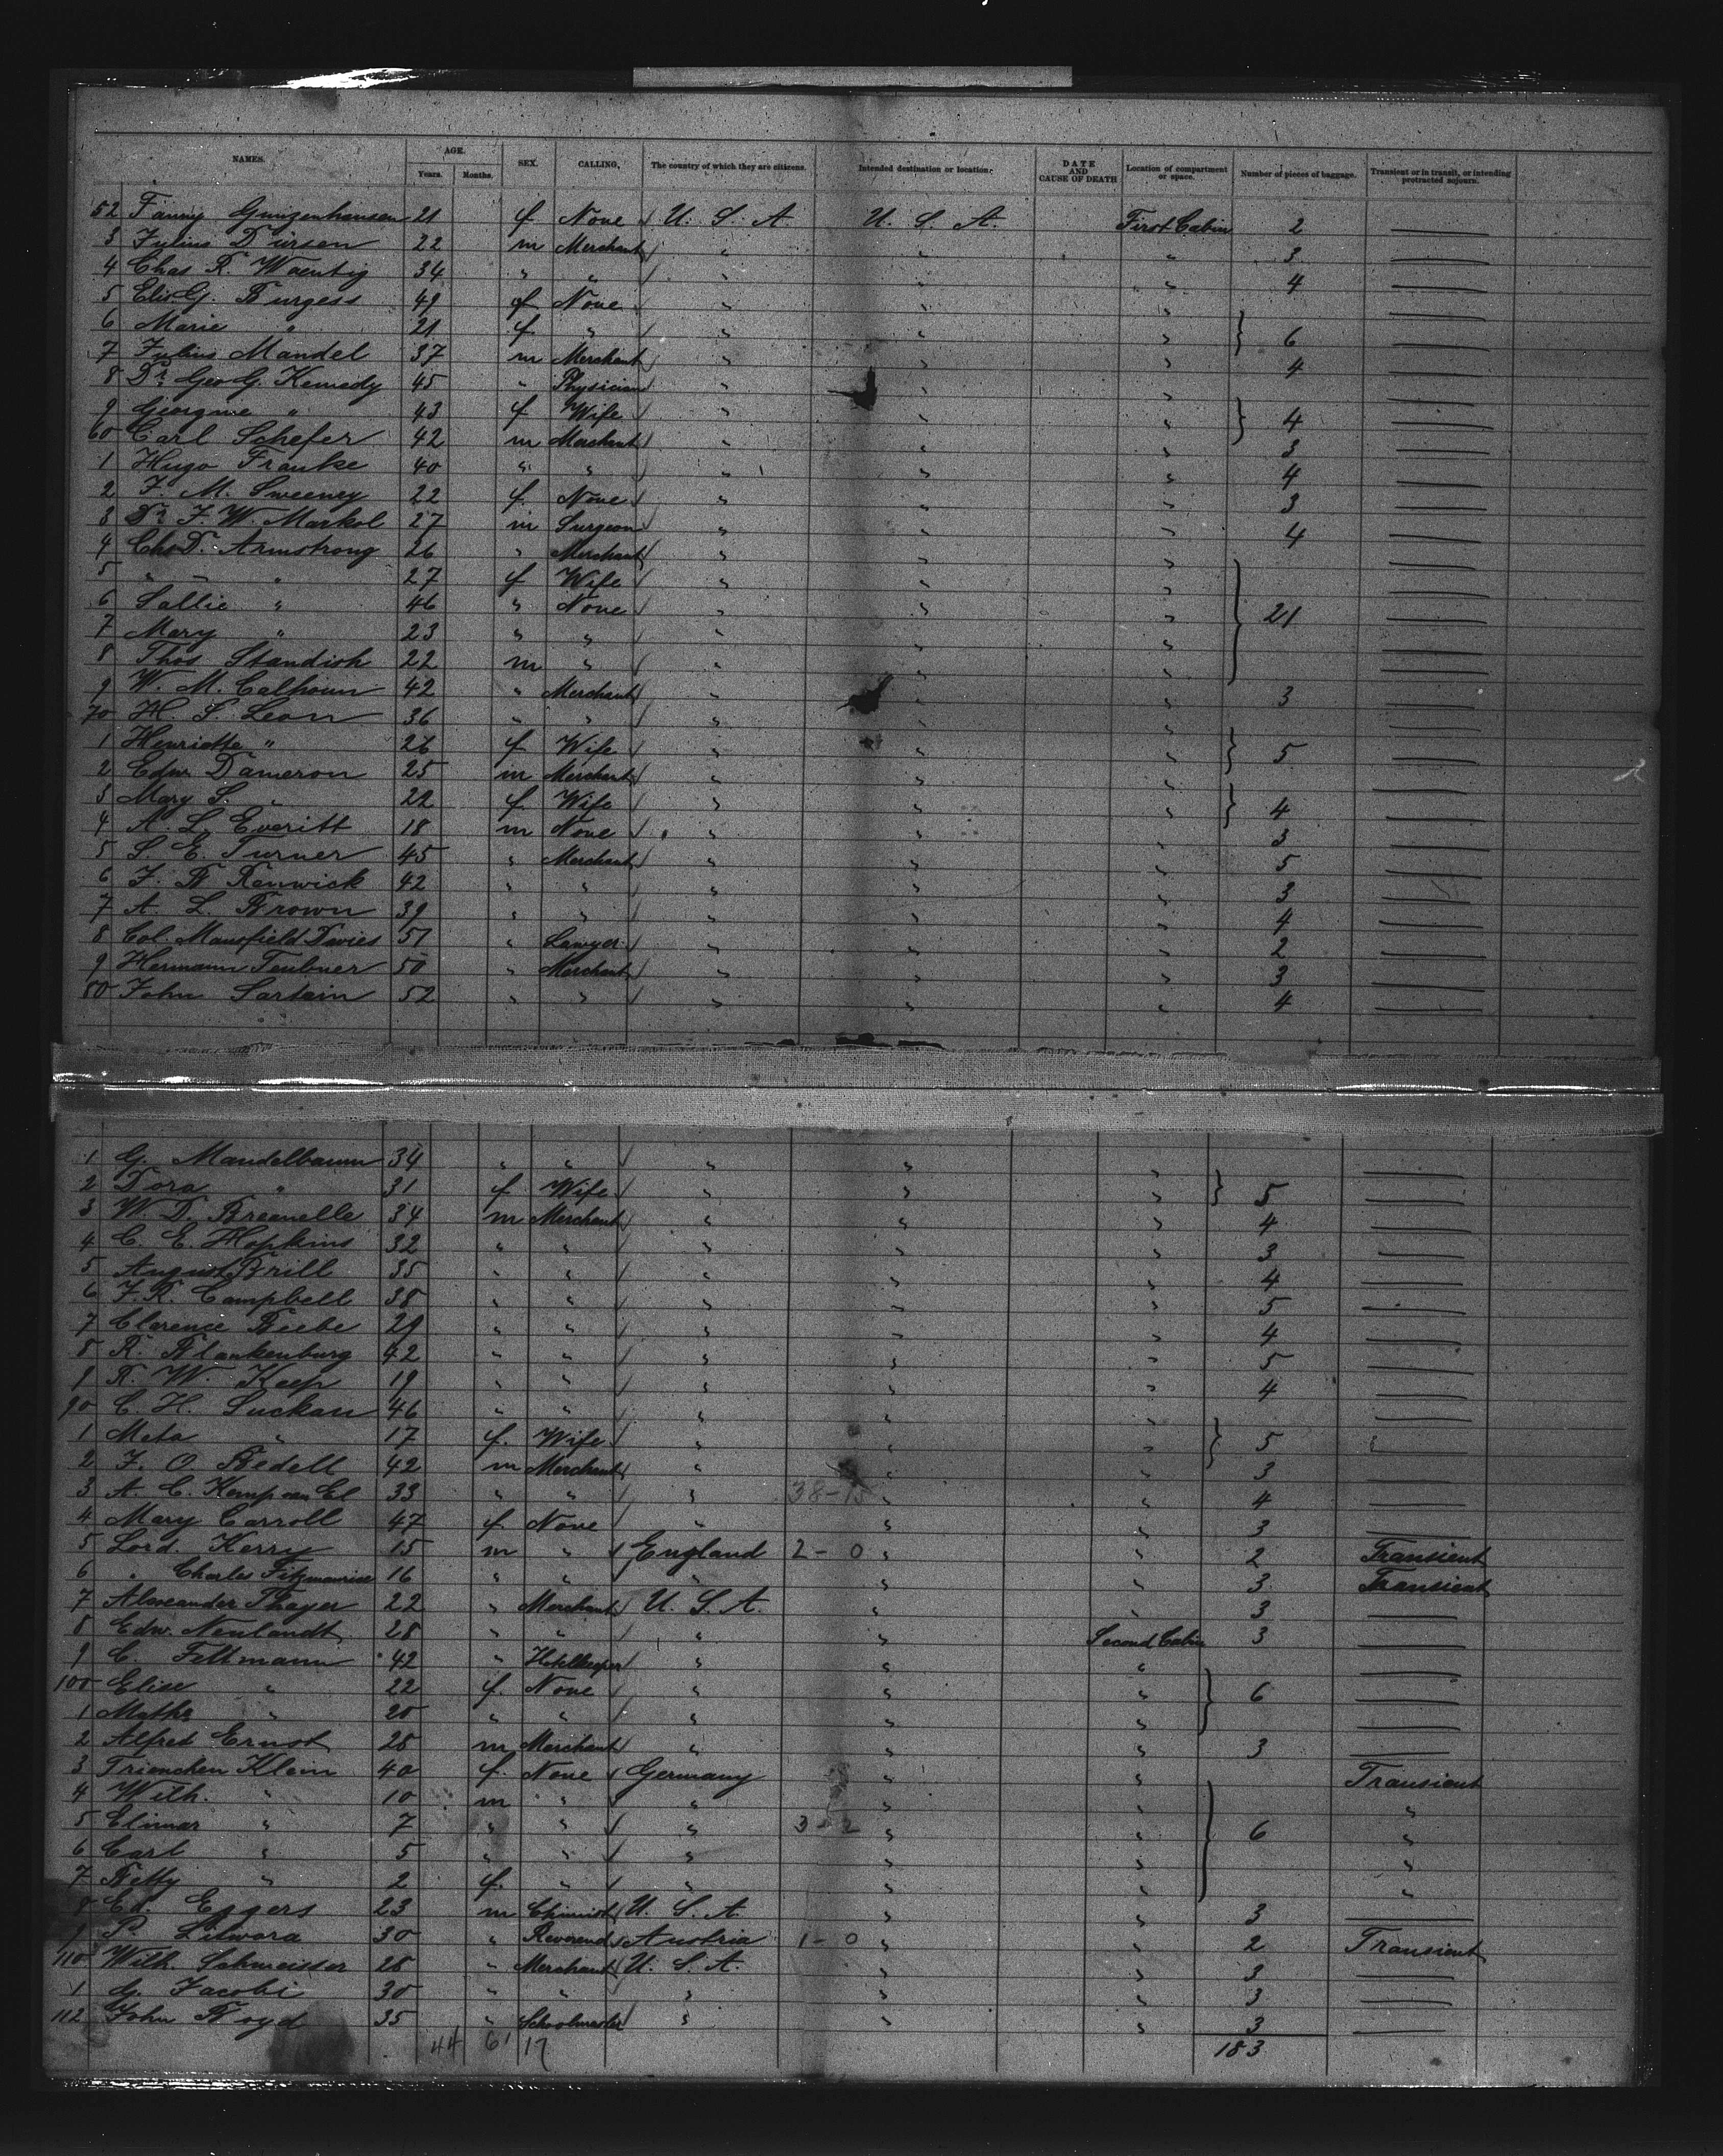 NAMES. AGE. Years. Months. SEX. CALLING. The country of which they are citizens. Intended destination or location. DATE AND CAUSE OF DEATH Location of compartment or space. Number of pieces of baggage. Transient or in transit, or intending protracted sojourn.
52 Fanny Gunzenhausen 21 f None U. S. A. U. S. A. First Cabin 2
3 Julius Dürsen 22 m Merchant " " " 3
4 Chas R. Waentig 34 " " " " " 4
5 Elis. G. Burgess 49 f None " " "
6 Marie " 21 f " " " " 6
7 Julius Mandel 37 m Merchant " " " 4
8 Dr. Geo G. Kennedy 45 " Physician " "
9 Georgine " 43 f Wife " " " 4
60 Carl Schefer 42 m Merchant " " " 3
1 Hugo Franke 40 " " " " " 4
2 F. M. Sweeney 22 f. None " " " 3
3 Dr. F. W. Markol 27 m Surgeon " " " 4
4 Chs D. Armstrong 26 " Merchant " " "
5 " " " 27 f Wife " " "
6 Sallie " 46 " None " " " 21
7 Mary " 23 " " " " "
8 Thos Standish 22 m " " " "
9 W. M. Calhoun 42 " Merchant " " " 3
70 H. S. Leon 36 " " " " "
1 Henriette " 26 f Wife " " " 5
2 Edw. Dameron 25 m Merchant " " "
3 Mary S. " 22 f Wife " " " 4
4 A. L. Everitt 18 m None " " " 3
5 S. E. Turner 45 " Merchant " " " 5
6 F. B. Renwick 42 " " " " " 3
7 A. L. Brown 39 " " " " " 4
8 Col. Mansfield Davies 51 " Lawyer " " " 2
9 Hermann Teubner 50 " Merchant " " " 3
80 John Sartain 52 " " " " " 4
1 G. Mandelbaum 34 " " " " "
2 Dora " 31 f Wife " " " 5
3 W. D. 34 m Merchant " " " 4
4 C. E. Hopkins 32 " " " " " 3
5 August Brill 35 " " " " " 4
6 F. R. Campbell 38 " " " " " 5
7 Clarence Beebe 29 " " " " " 4
8 R. Blankenburg 42 " " " " " 5
9 R. W. Keep 19 " " " " " 4
90 C. H. Suckau 46 " " " " "
1 Meta " 17 f. Wife " " " 5
2 F. O. Bedell 42 m Merchant " " " 3
3 A. C. Kemp van El 33 " " " 38-15 " " 4
4 Mary Carroll 47 f. None " " " 3
5 Lord Kerry 15 m " England 2-0 " " 2 Transient
6 " Charles Fitzmaurice 16 " " " " " 3 Transient
7 Alexander Thayer 22 " Merchant U. S. A. " " 3
8 Edw. Neulandt 28 " " " " Second Cabin 3
9 C. Feltmann 42 " Hotelkeeper " " "
100 Elise " 22 f. None " " " 6
1 " 20 " " " " "
2 Alfred Ernst 28 m Merchant " " " 3
3 Trienchen Klein 40 f. None Germany " " Transient
4 Wilh. " 10 m " " " " "
5 Elimar " 7 " " " 3-2 " " 6 "
6 Carl " 5 " " " " " "
7 Betty " 2 f. " " " " "
8 Ed. Eggers 23 m Chimist U. S. A. " " 3
9 P. Litwora 30 " Reverend Austria 1-0 " " 2 Transient
110 Wilh. Schmeisser 28 " Merchant U. S. A. " " 3
1 G. Jacobi 30 " " " " " 3
112 John Boyd 35 " Schoolmaster " " " 3
44 61 17 183